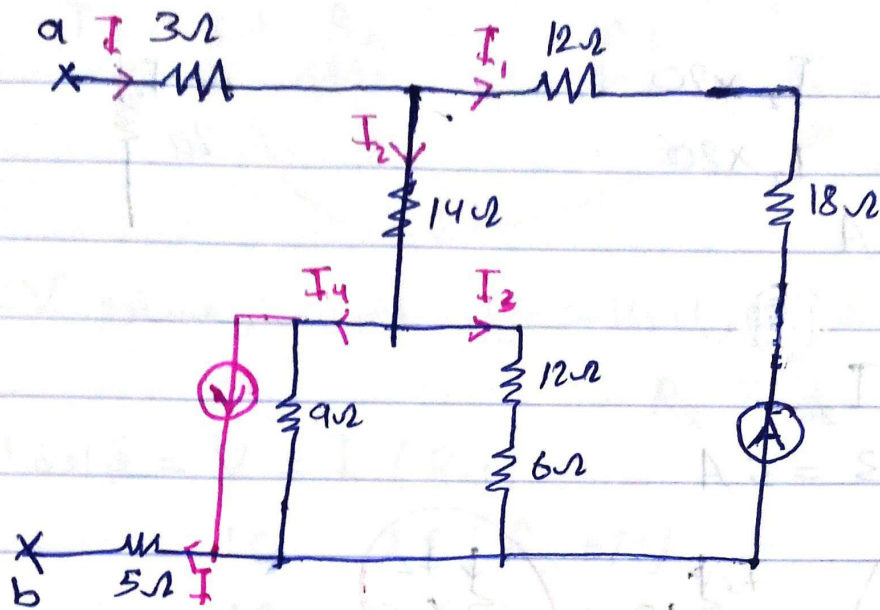 a I 3Ω I₁ 12Ω
I₂
14Ω 18Ω
I₄ I₃
12Ω
9Ω A
6Ω
b 5Ω I